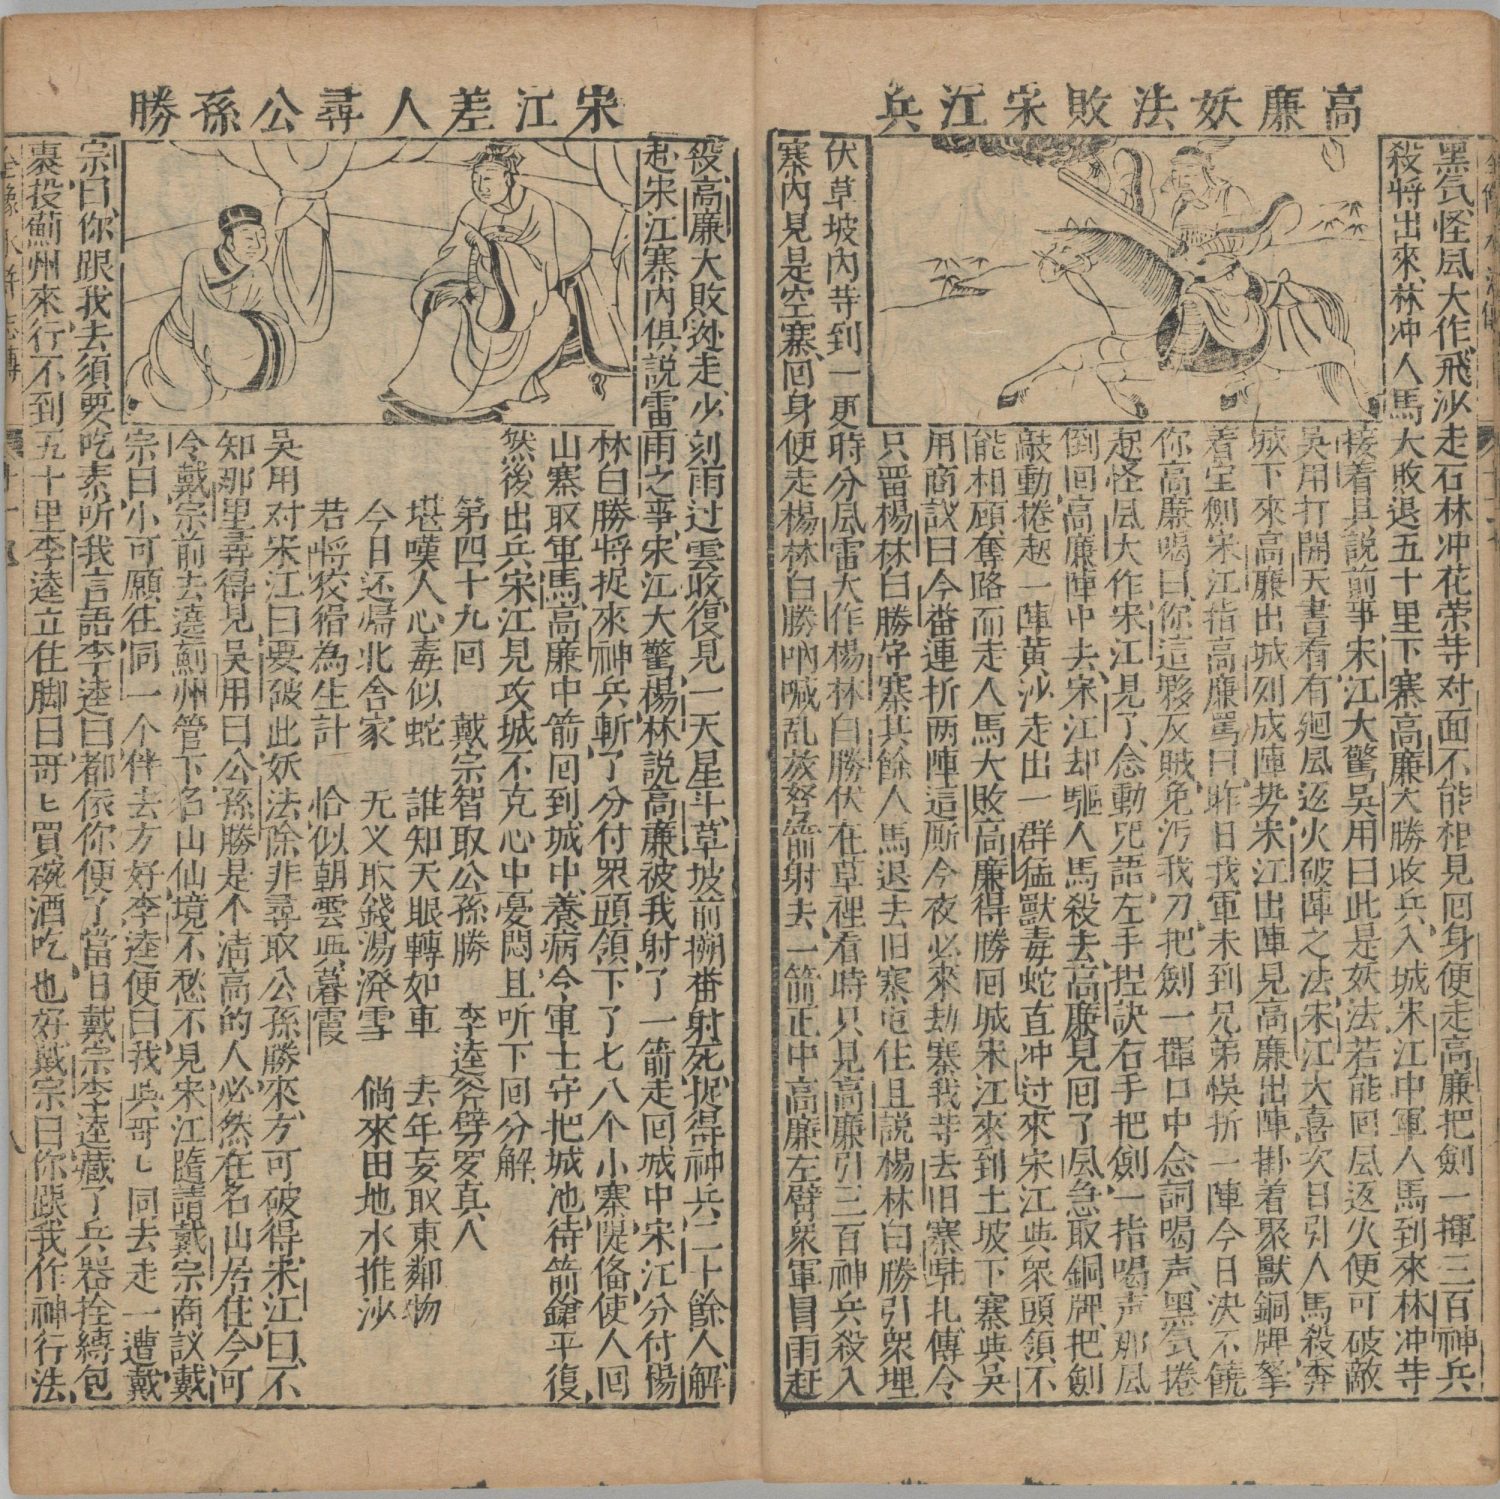 高廉妖法敗宋江兵
黑気怪風大作飛沙走石林冲花荣等对面不能相見回身便走高廉把劍一揮三百神兵
殺將出來林冲人馬大敗退五十里下寨高廉大勝收兵入城宋江中軍人馬到來林冲等
接着具說前事宋江大驚吳用曰此是妖法若能回風返火便可破敵
吳用打開天書看有廻風返火破陣之法宋江大喜次日引人馬殺奔
城下來高廉出城列成陣势宋江出陣見高廉出陣掛着聚獸銅牌拏
着宝劍宋江指高廉罵曰昨日我軍未到兄弟悞折一陣今日决不饒
你高廉喝曰你這夥反賊免汚我刀把劍一揮口中念詞喝声黑気捲
起怪風大作宋江見了念動咒語左手捏訣右手把劍一指喝声那風
倒回高廉陣中去宋江却驅人馬殺去高廉見回了風急取銅牌把劍
敲動捲起一陣黄沙走出一群猛獸毒蛇直冲过來宋江與衆頭領不
能相顧奪路而走人馬大敗高廉得勝回城宋江來到土坡下寨與吳
用商議曰今番連折两陣這厮今夜必來劫寨我等去旧寨駐扎傳令
只畱楊林白勝守寨其餘人馬退去旧寨屯住且說楊林白勝引衆埋
伏草坡內等到一更時分風雷大作楊林白勝伏在草裡看時只見高廉引三百神兵殺入
寨內見是空寨回身便走楊林白勝吶喊乱放弩箭射去一箭正中高廉左臂衆軍冒雨赶
宋江差人尋公孫勝
殺高廉大敗迯走少刻雨过雲收復見一天星斗草坡前搠番射死捉得神兵二十餘人解
起宋江寨內俱説雷雨之事宋江大驚楊林說高廉被我射了一箭走回城中宋江分付楊
林白勝將捉來神兵斬了分付眾頭領下了七八个小寨隄俻使人回
山寨取軍馬高廉中箭回到城中養病令軍士守把城池待箭鎗平復
然後出兵宋江見攻城不克心中憂悶且听下回分解
第四十九回　戴宗智取公孫勝　李逵斧劈罗真人
堪嘆人心毒似蛇　誰知天眼轉如車　去年妄取東鄰物
今日还歸北舍家　无义取錢湯潑雪　倘來田地水推沙
若將狡猾為生計　恰似朝雲與暮霞
吳用对宋江曰要破此妖法除非尋取公孫勝來方可破得宋江曰不
知那里尋得見吳用曰公孫勝是个清高的人必然在名山居住今可
令戴宗前去遶薊州管下名山仙境不愁不見宋江隨請戴宗商议戴
宗曰小可願往同一个伴去方好李逵便曰我與哥匕同去走一遭戴
宗曰你跟我去須要吃素听我言語李逵曰都依你便了當日戴宗李逵藏了兵器拴縛包
裹投薊州來行不到五十里李逵立住脚曰哥匕買碗酒吃也好戴宗曰你跟我作神行法